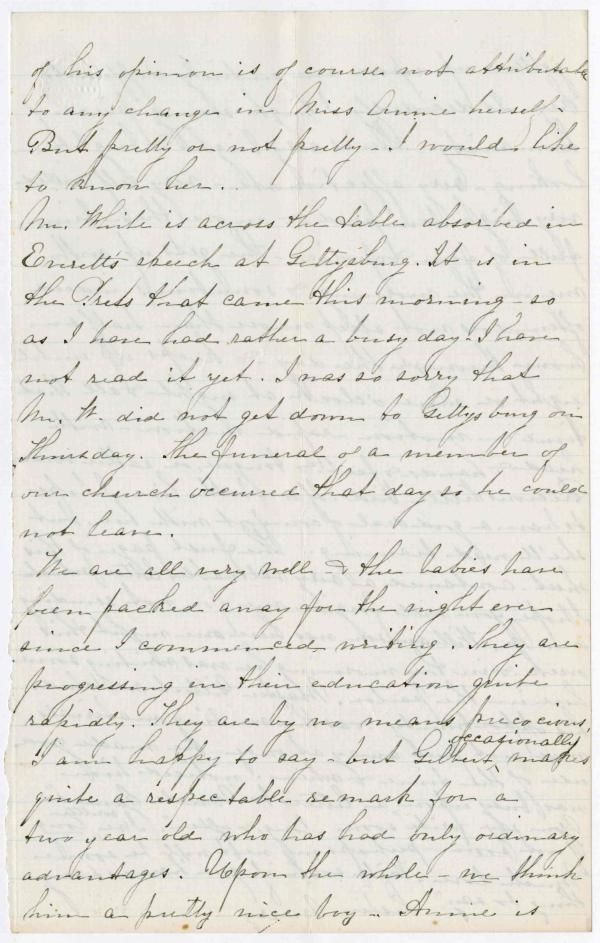 of his opinion is of course not attributable
to any change in Miss Annie herself -
But pretty or not pretty - I would like
to know her. .
Mr. White is across the table absorbed in
Everett's speech at Gettysburg. It is in
the Press that came this morning - so
as I have had rather a busy day - I have
not read it yet. I was so sorry that
Mr. W. did not get down to Gettysburg on
Thursday. The funeral of a member of
our church occurred that day so he could
not leave.
We are all very well & the babies have
been packed away for the night ever
since I commenced writing. They are
progressing in their education quite
rapidly. They are by no means precocious,
I am happy to say - but Gilbert occasionally makes
quite a respectable remark for a
two year old who has had only ordinary
advantages. Upon the whole - we think
him a pretty nice boy - Annie is